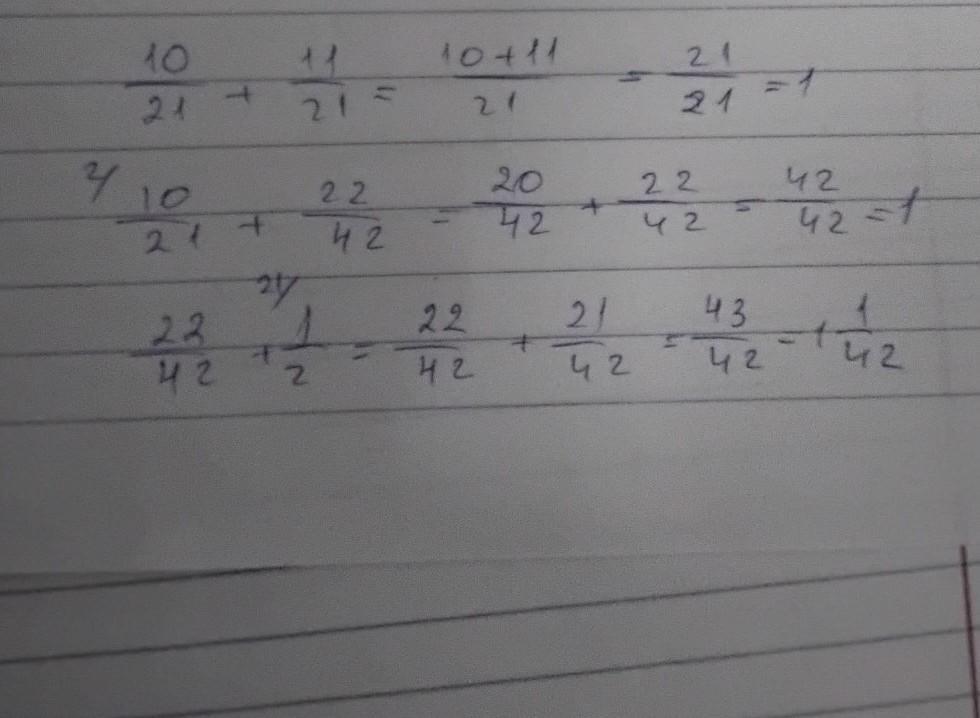 10/21 + 11/21 = 10+11/21 = 21/21 = 1
2/ 10/21 + 22/42 = 20/42 + 22/42 = 42/42 = 1
22/42 + 21/ 1/2 = 22/42 + 21/42 = 43/42 - 1 1/42